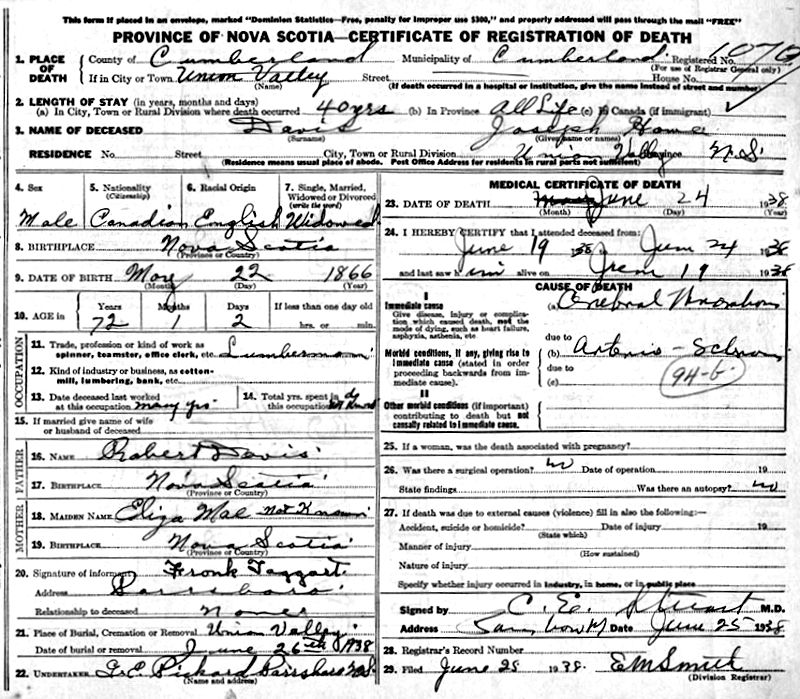 This form if placed in an envelope, marked "Dominion Statistics—Free, penalty for improper use $300," and properly addressed will pass through the mail "FREE"
PROVINCE OF NOVA SCOTIA—CERTIFICATE OF REGISTRATION OF DEATH
1. PLACE OF DEATH
County of Cumberland Municipality of Cumberland Registered No. 1076
(For use of Registrar General only)
If in City or Town Union Valley Street House No.
(Name) (If death occurred in a hospital or institution, give the name instead of street and number)
2. LENGTH OF STAY (in years, months and days)
(a) In City, Town or Rural Division where death occurred 40 yrs (b) In Province All Life (c) In Canada (if immigrant)
3. NAME OF DECEASED Davis Joseph Howe
(Surname) (Given name or names)
RESIDENCE No. Street City, Town or Rural Division Union Valley Province N.S.
(Residence means usual place of abode. Post Office Address for residents in rural parts not sufficient)
4. Sex 5. Nationality (Citizenship) 6. Racial Origin 7. Single, Married, Widowed or Divorced (write the word)
Male Canadian English Widowed
8. BIRTHPLACE Nova Scotia
(Province or Country)
9. DATE OF BIRTH May 22 1866
(Month) (Day) (Year)
10. AGE in Years Months Days If less than one day old
72 1 2 hrs. or min.
OCCUPATION
11. Trade, profession or kind of work as spinner, teamster, office clerk, etc. Lumberman
12. Kind of industry or business, as cotton-mill, lumbering, bank, etc.
13. Date deceased last worked at this occupation many yrs
14. Total yrs. spent in this occupation
15. If married give name of wife or husband of deceased
FATHER
16. NAME Robert Davis
17. BIRTHPLACE Nova Scotia
(Province or Country)
MOTHER
18. MAIDEN NAME Eliza Mae not Known
19. BIRTHPLACE Nova Scotia
(Province or Country)
20. Signature of informant Frank Taggart
Address Parrsboro
Relationship to deceased None
21. Place of Burial, Cremation or Removal Union Valley
Date of burial or removal June 26th 1938
22. UNDERTAKER G.E. Pickard Parrsboro N.S.
(Name and address)
MEDICAL CERTIFICATE OF DEATH
23. DATE OF DEATH June 24 1938
(Month) (Day) (Year)
24. I HEREBY CERTIFY that I attended deceased from:
June 19 1938 June 24 1938
and last saw him alive on June 19 1938
CAUSE OF DEATH
I
Immediate cause
Give disease, injury or complication which caused death, not the mode of dying, such as heart failure, asphyxia, asthenia, etc.
(a) Cerebral
due to
Morbid conditions, if any, giving rise to immediate cause (stated in order proceeding backwards from immediate cause).
(b) Arterio-
due to
(c)
94-b
II
Other morbid conditions (if important) contributing to death but not causally related to immediate cause.
25. If a woman, was the death associated with pregnancy?
26. Was there a surgical operation? no Date of operation 19
State findings Was there an autopsy? no
27. If death was due to external causes (violence) fill in also the following:—
Accident, suicide or homicide? Date of injury 19
(State which)
Manner of injury
(How sustained)
Nature of injury
Specify whether injury occurred in industry, in home, or in public place
Signed by C. E. Stuart M.D.
Address Date June 25 1938
28. Registrar's Record Number
29. Filed June 28 1938. E M Smith
(Division Registrar)